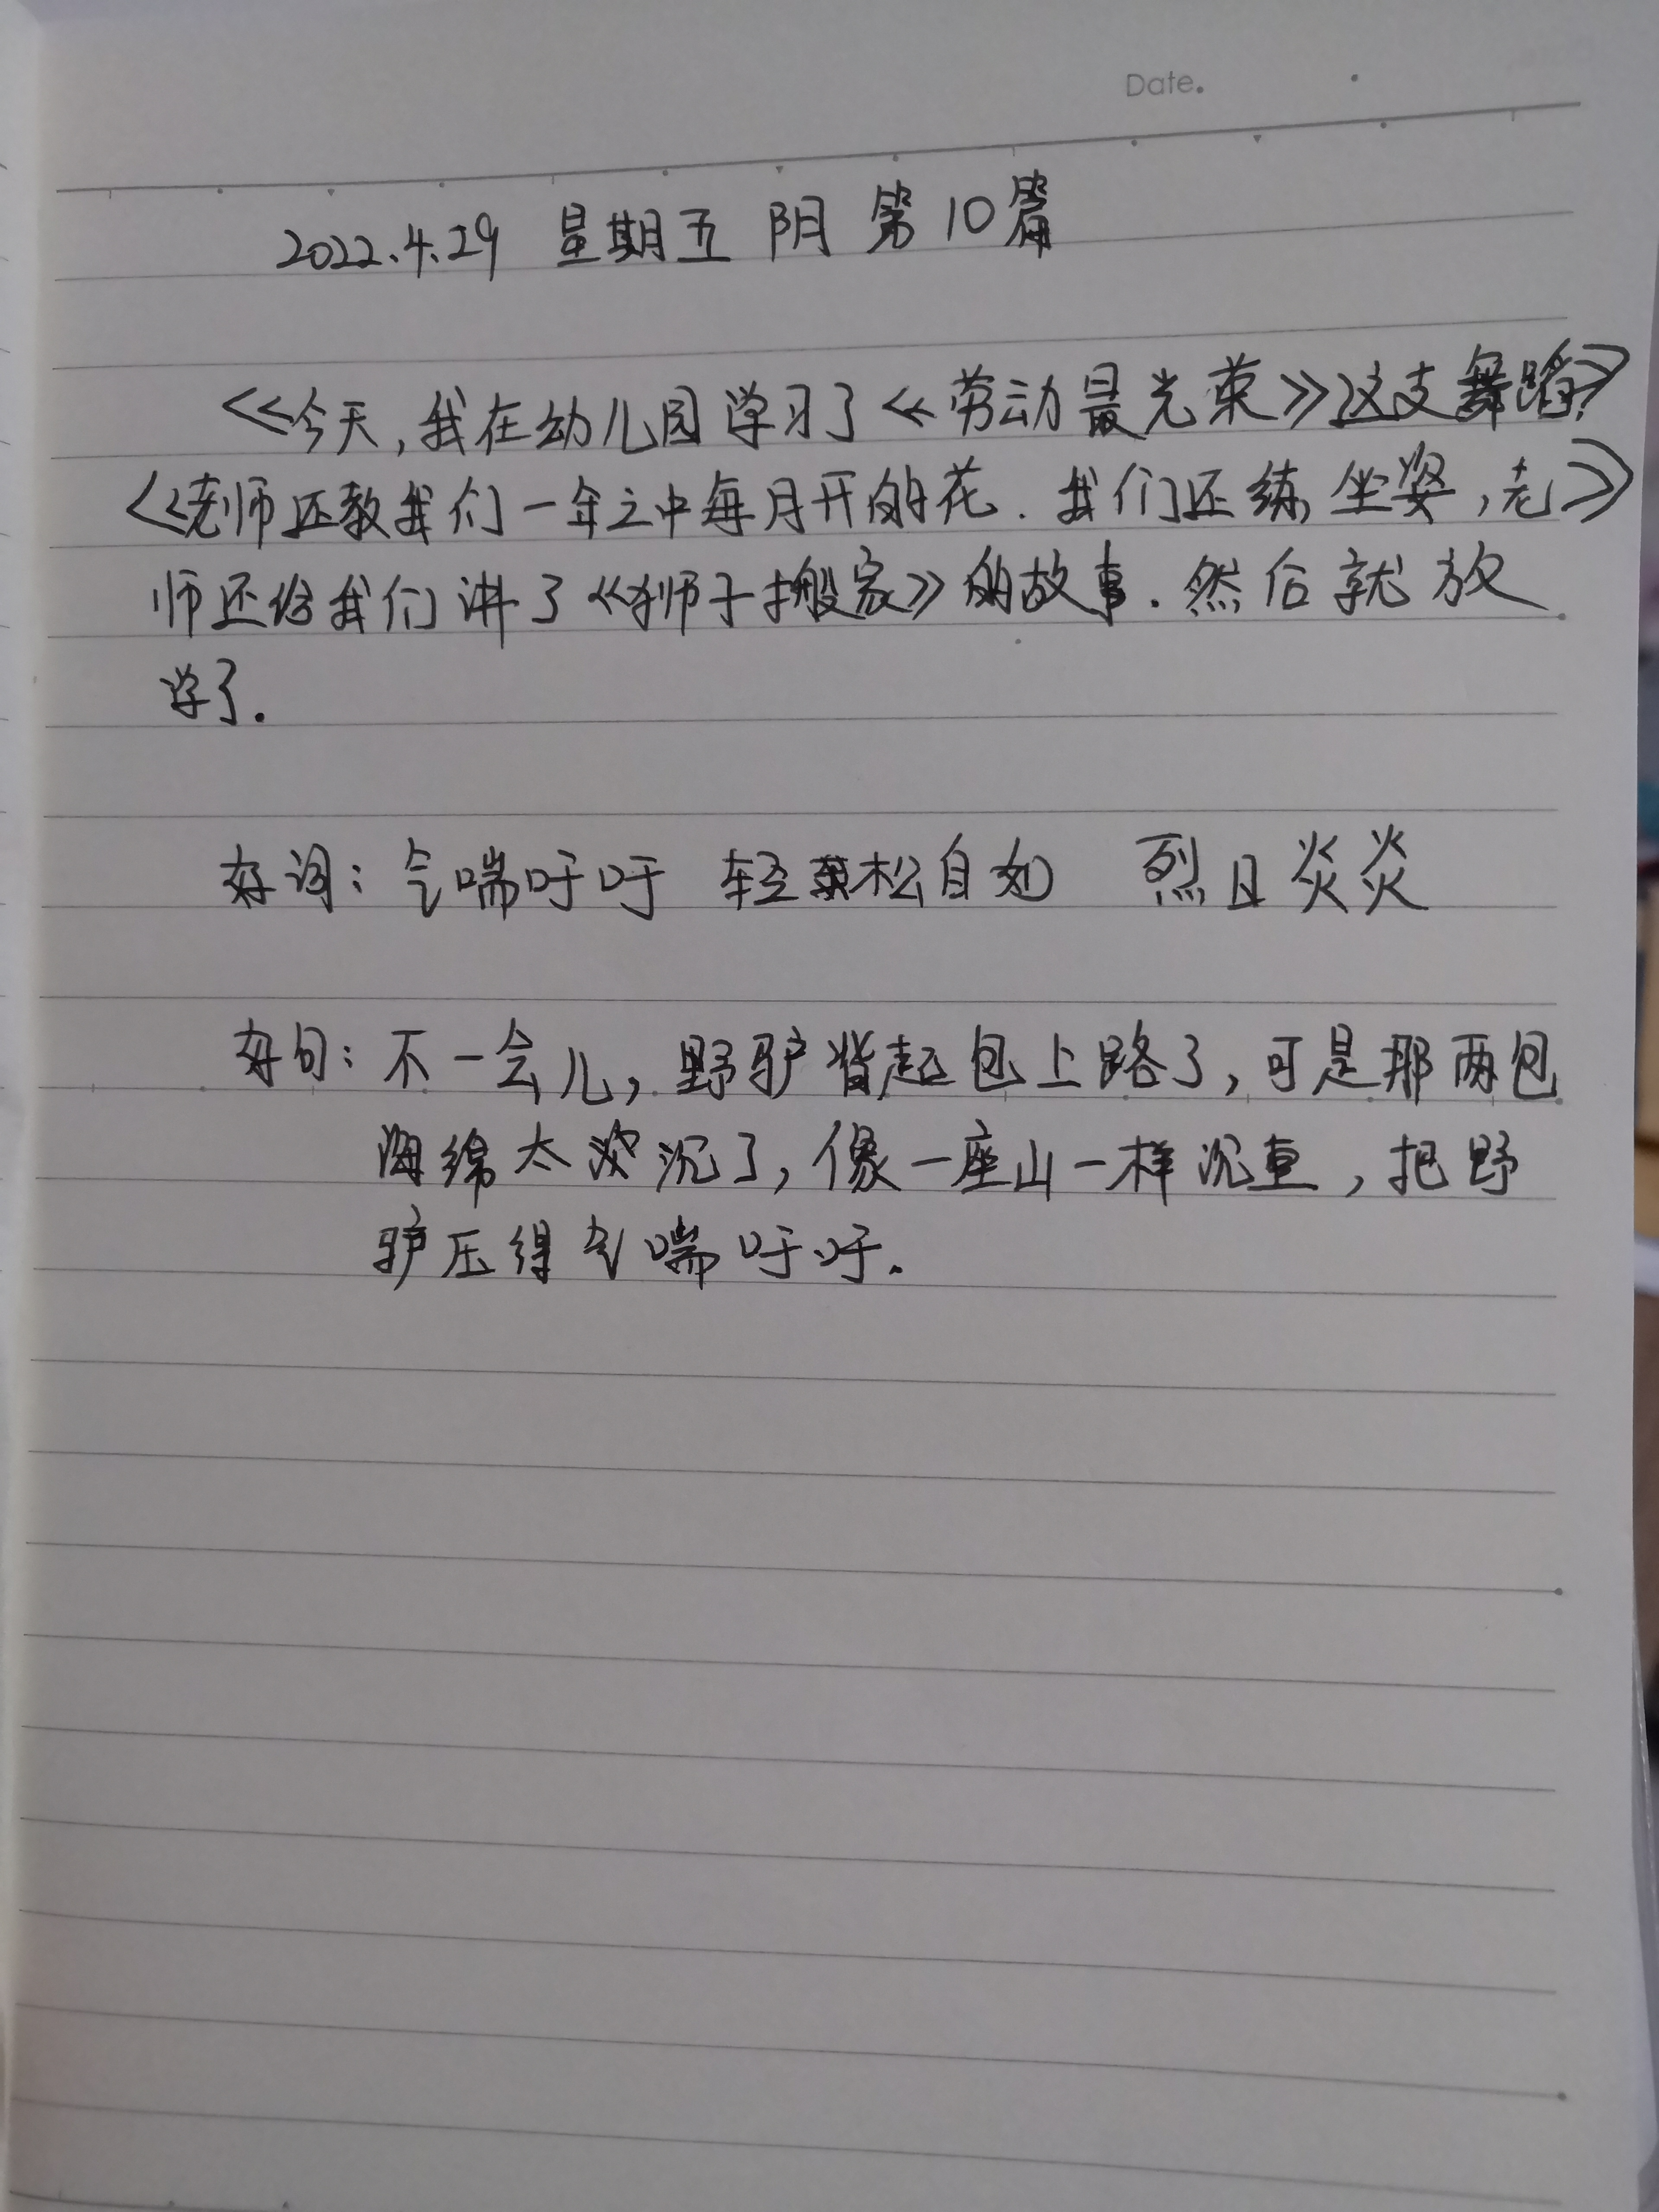 Date.
2022.4.29 星期五 阴 第10篇
《今天,我在幼儿园学习了《劳动最光荣》这支舞蹈》
《老师还教我们一年之中每月开的花.我们还练坐姿,老》
师还给我们讲了《狮子搬家》的故事.然后就放
学了.
好词:气喘吁吁 轻松自如 烈日炎炎
好句:不一会儿,野驴背起包上路了,可是那两包
海绵太沉了,像一座山一样沉重,把野
驴压得气喘吁吁.